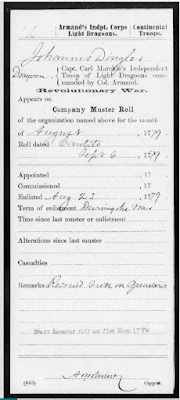 Armand's Indpt. Corps Light Dragoons. Continental Troops.
Johannes Dingler
Dragoon, Capt. Carl Marckle's Independent
Troop of Light Dragoons com-
manded by Col. Armand.
Revolutionary War.
Appears on
Company Muster Roll
of the organization named above for the month
of August, 1779.
Roll dated
Sept 6, 1779.
Appointed 17
Commissioned 17
Enlisted Aug 23, 1779
Term of enlistment During the War
Time since last muster or enlistment
Alterations since last muster
Casualties
Remarks
Next muster roll on file Dec 1779
(543) Copyist.